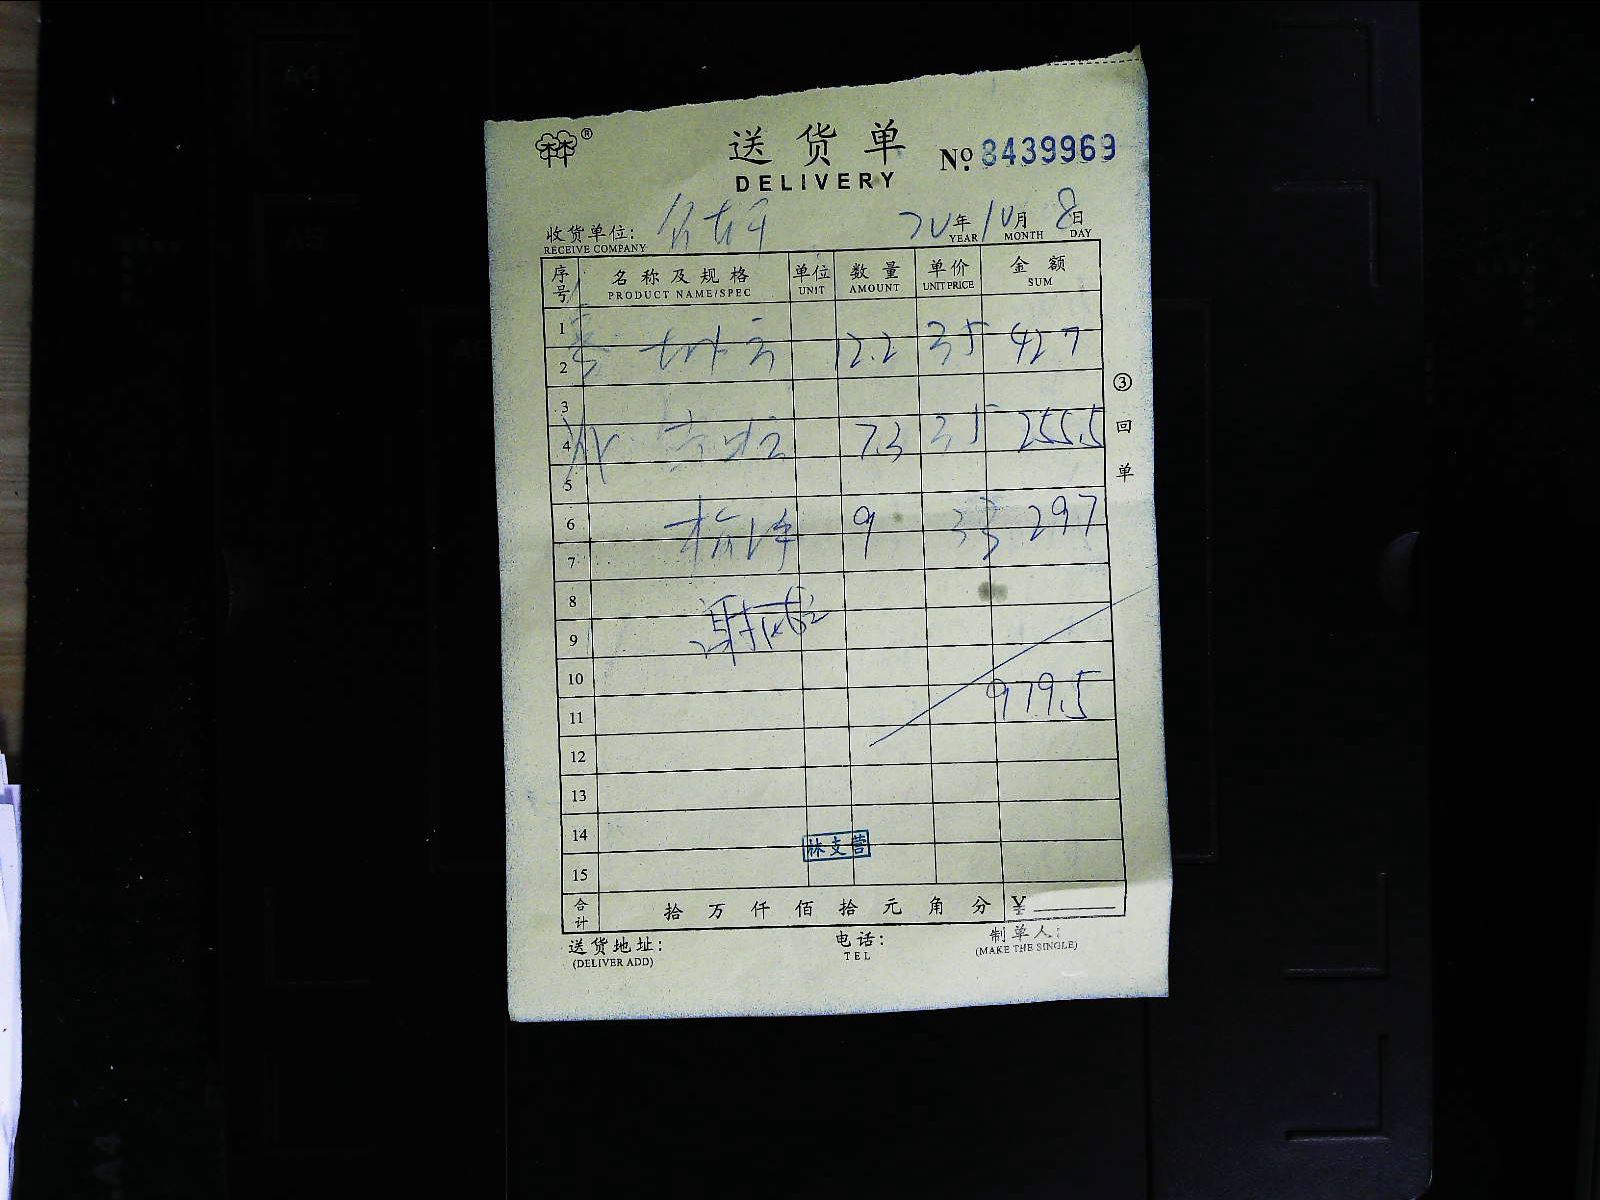 ®
送货单 №8439969
DELIVERY
收货单位: 20年10月8日
RECEIVE COMPANY YEAR MONTH DAY
序号 名称及规格 单位 数量 单价 金额
PRODUCT NAME/SPEC UNIT AMOUNT UNIT PRICE SUM
1
2 12.2 35 427
3
4 7.3 35 255.5
5
6 9 33 297
7
8
9
10
11 979.5
12
13
14
林支营
15
合计 拾 万 仟 佰 拾 元 角 分 ¥
送货地址: 电话: 制单人:
(DELIVER ADD) TEL (MAKE THE SINGLE)
③回单